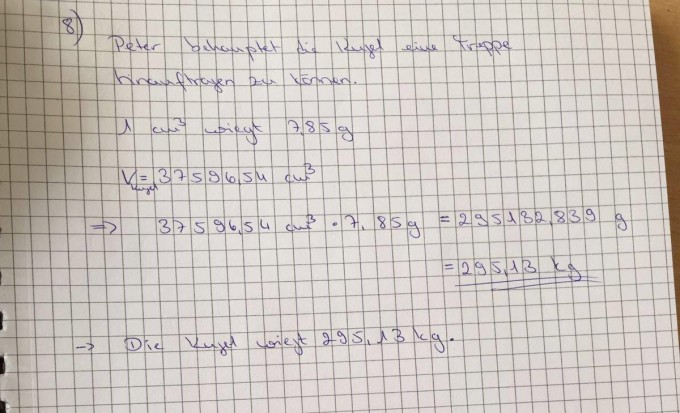 8)
Peter behauptet die Kugel eine Treppe
hinauftragen zu können.
1 cm³ wiegt 7,85 g
V_Kugel = 37596,54 cm³
=> 37596,54 cm³ · 7,85g = 295132,839 g
= 295,13 kg
-> Die Kugel wiegt 295,13 kg.